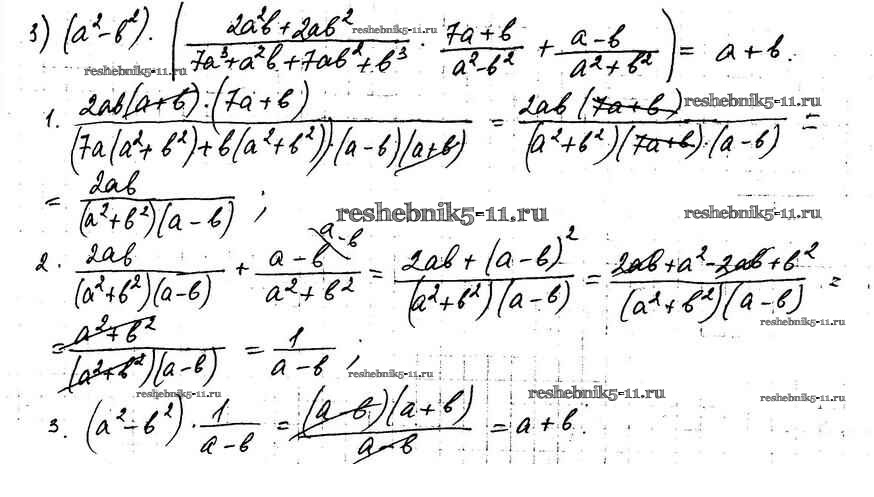 3) (a²-b²)·((2a²b+2ab²)/(7a³+a²b+7ab²+b³) · (7a+b)/(a²-b²) + (a-b)/(a²+b²)) = a+b.
reshebnik5-11.ru
reshebnik5-11.ru
reshebnik5-11.ru
1. (2ab(a+b)·(7a+b))/((7a(a²+b²)+b(a²+b²))·(a-b)(a+b)) = (2ab(7a+b))/((a²+b²)(7a+b)·(a-b)) =
reshebnik5-11.ru
= (2ab)/((a²+b²)(a-b)) ;
reshebnik5-11.ru
reshebnik5-11.ru
2. (2ab)/((a²+b²)(a-b)) + (a-b)/(a²+b²) \a-b = (2ab+(a-b)²)/((a²+b²)(a-b)) = (2ab+a²-2ab+b²)/((a²+b²)(a-b)) =
reshebnik5-11.ru
= (a²+b²)/((a²+b²)(a-b)) = 1/(a-b) ;
reshebnik5-11.ru
reshebnik5-11.ru
reshebnik5-11.ru
reshebnik5-11.ru
3. (a²-b²)·1/(a-b) = ((a-b)(a+b))/(a-b) = a+b.